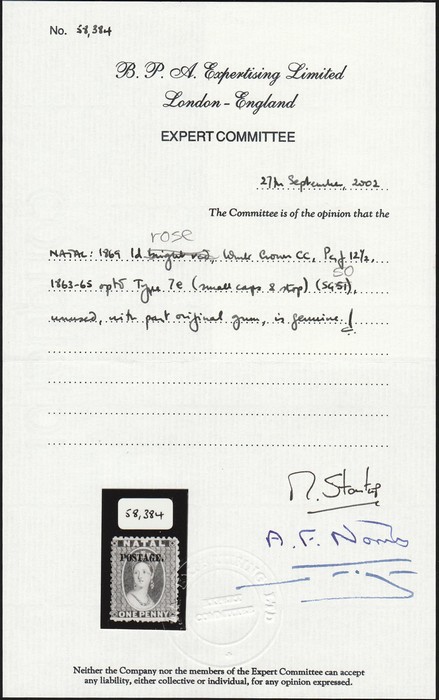 No. 58,384
B. P. A. Expertising Limited
London - England
EXPERT COMMITTEE
27th September, 2002
The Committee is of the opinion that the
rose
NATAL: 1869 1d bright red, Wmk Crown CC, Perf 12½,
50
1863-65 optd Type 7e (small caps & stop) (SG51),
unused, with part original gum, is genuine.
58,384
NATAL
POSTAGE.
ONE PENNY
Neither the Company nor the members of the Expert Committee can accept
any liability, either collective or individual, for any opinion expressed.